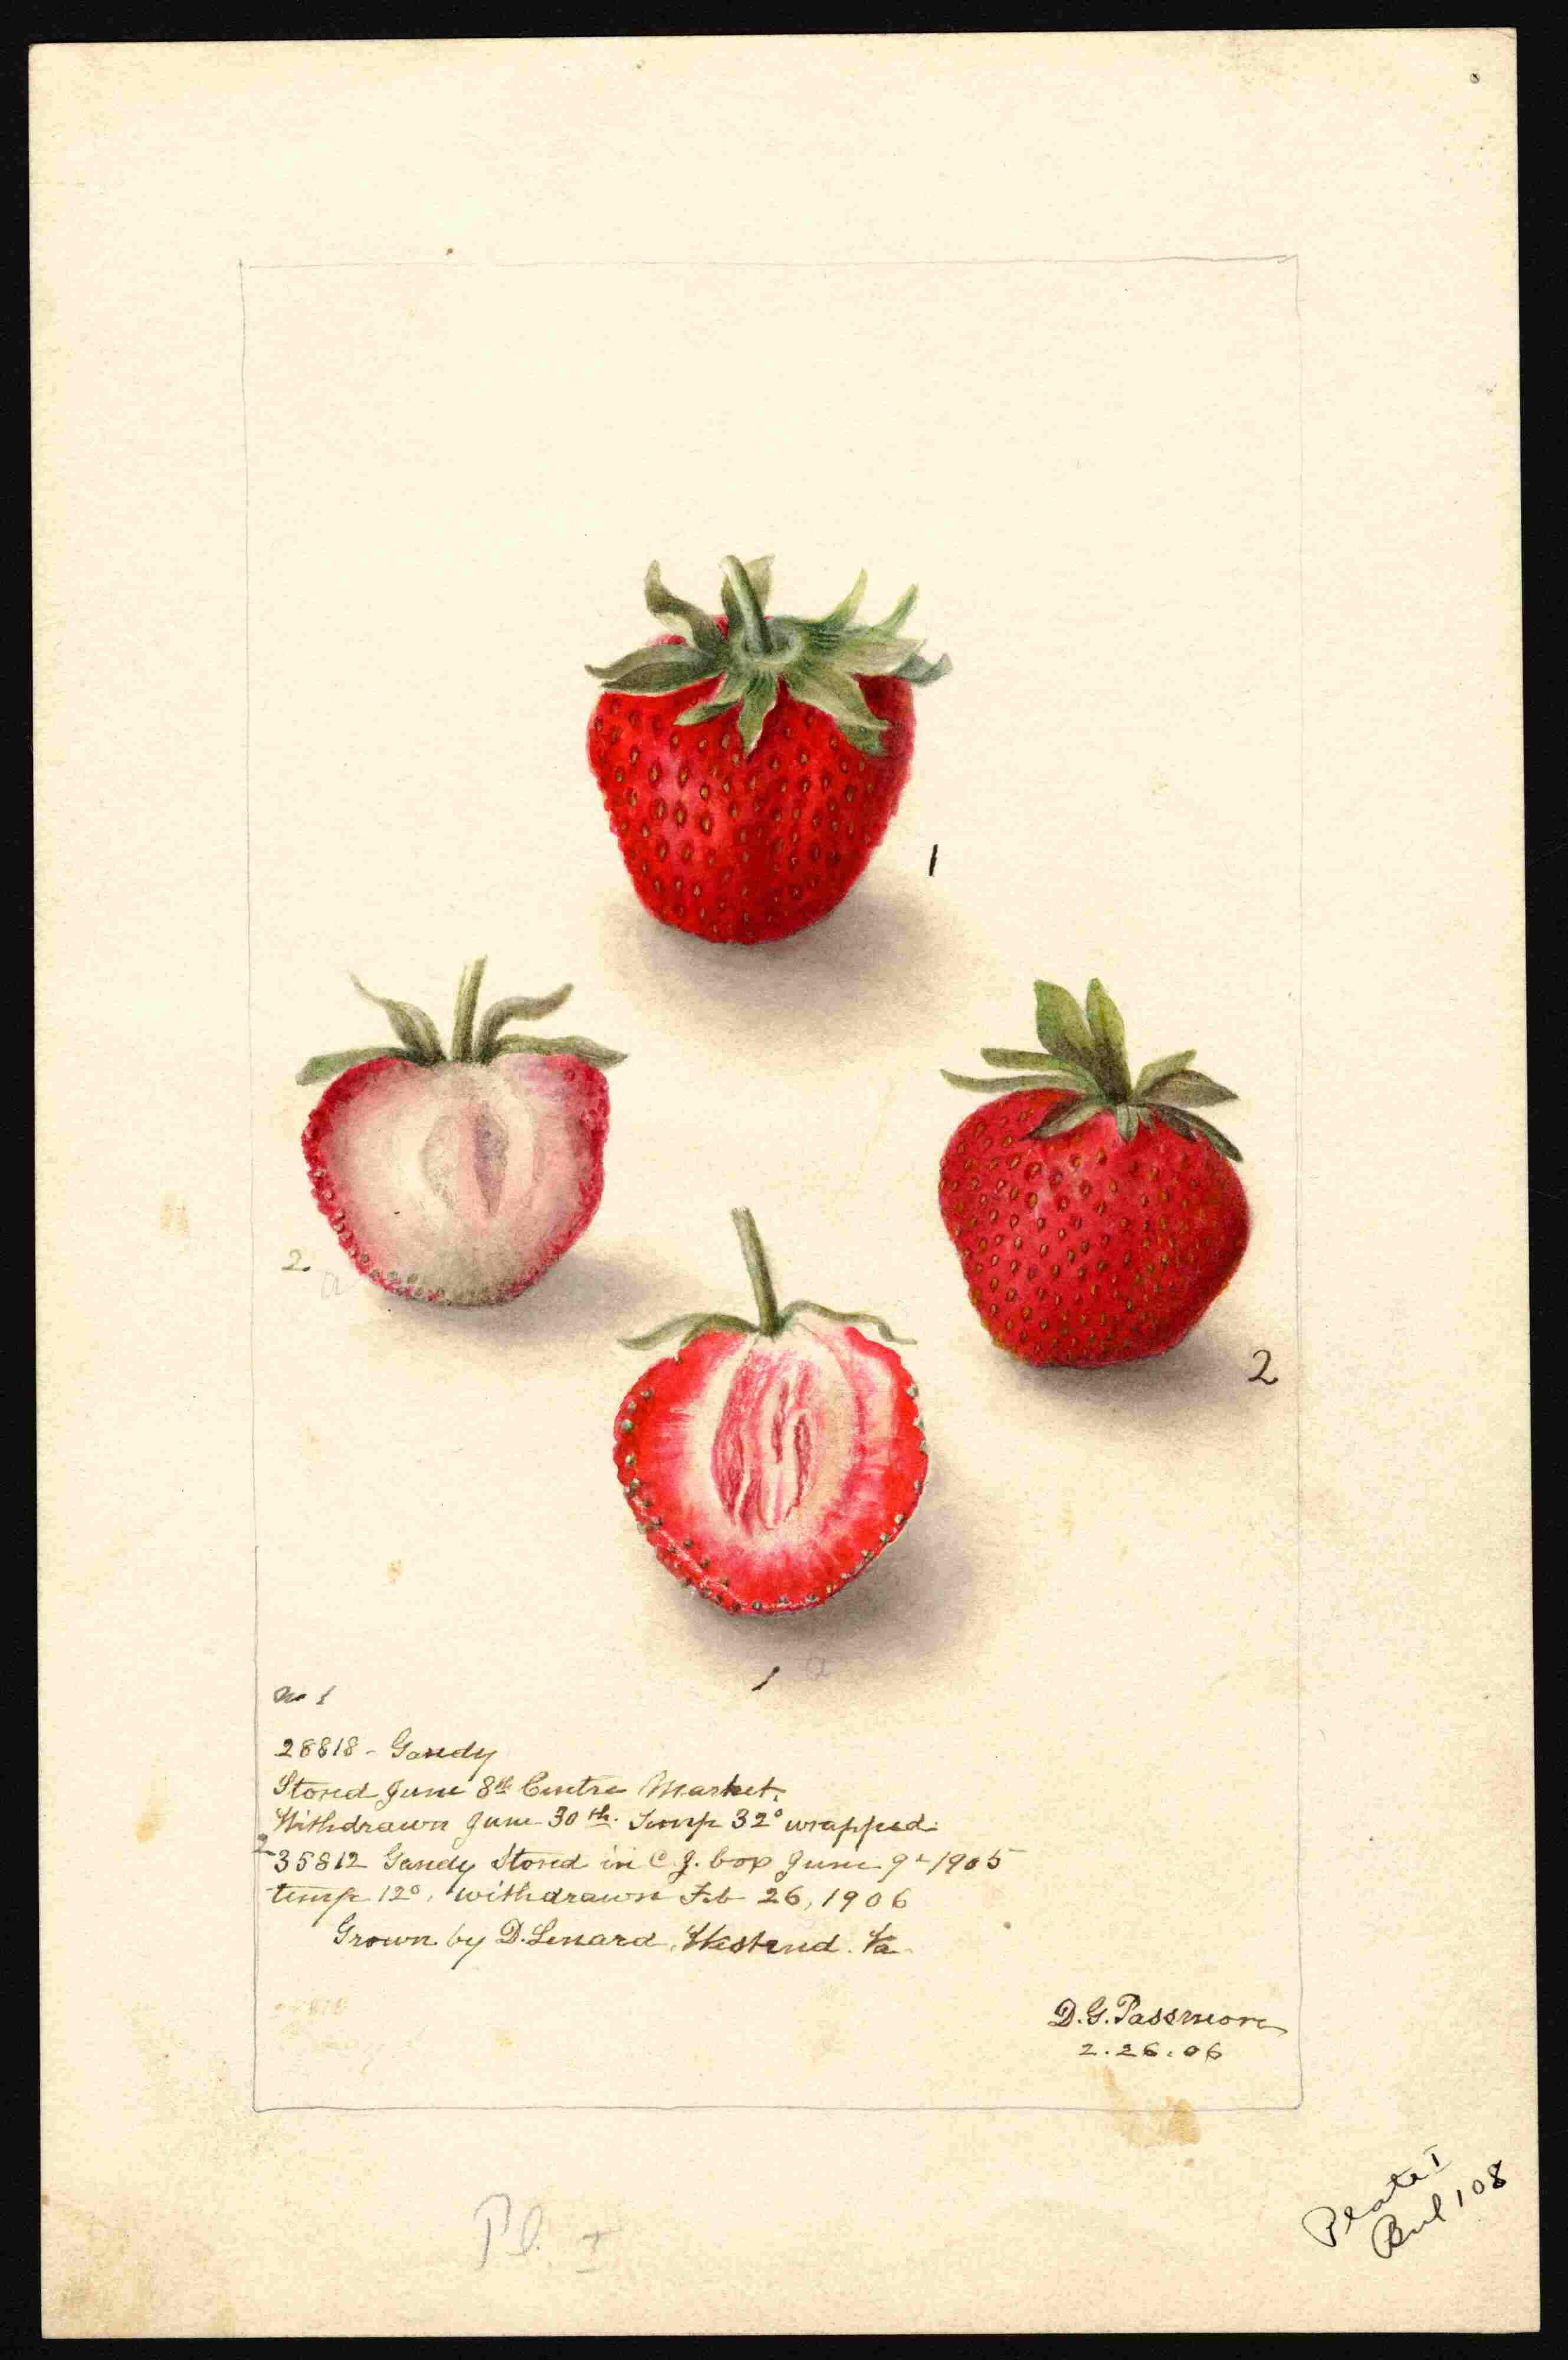 1
2
2.
a
1 a
No 1
28818 - Gandy
Stored June 8th Centre Market.
Withdrawn June 30th. Temp 32° wrapped.
2 35812 Gandy Stored in C. J. box June 9th 1905
temp 12°, withdrawn Feb 26, 1906
Grown by D. Lenard, Westend. Va.
D. G. Passmore
2.26.06
Pl. I
Plate I
Bul 108